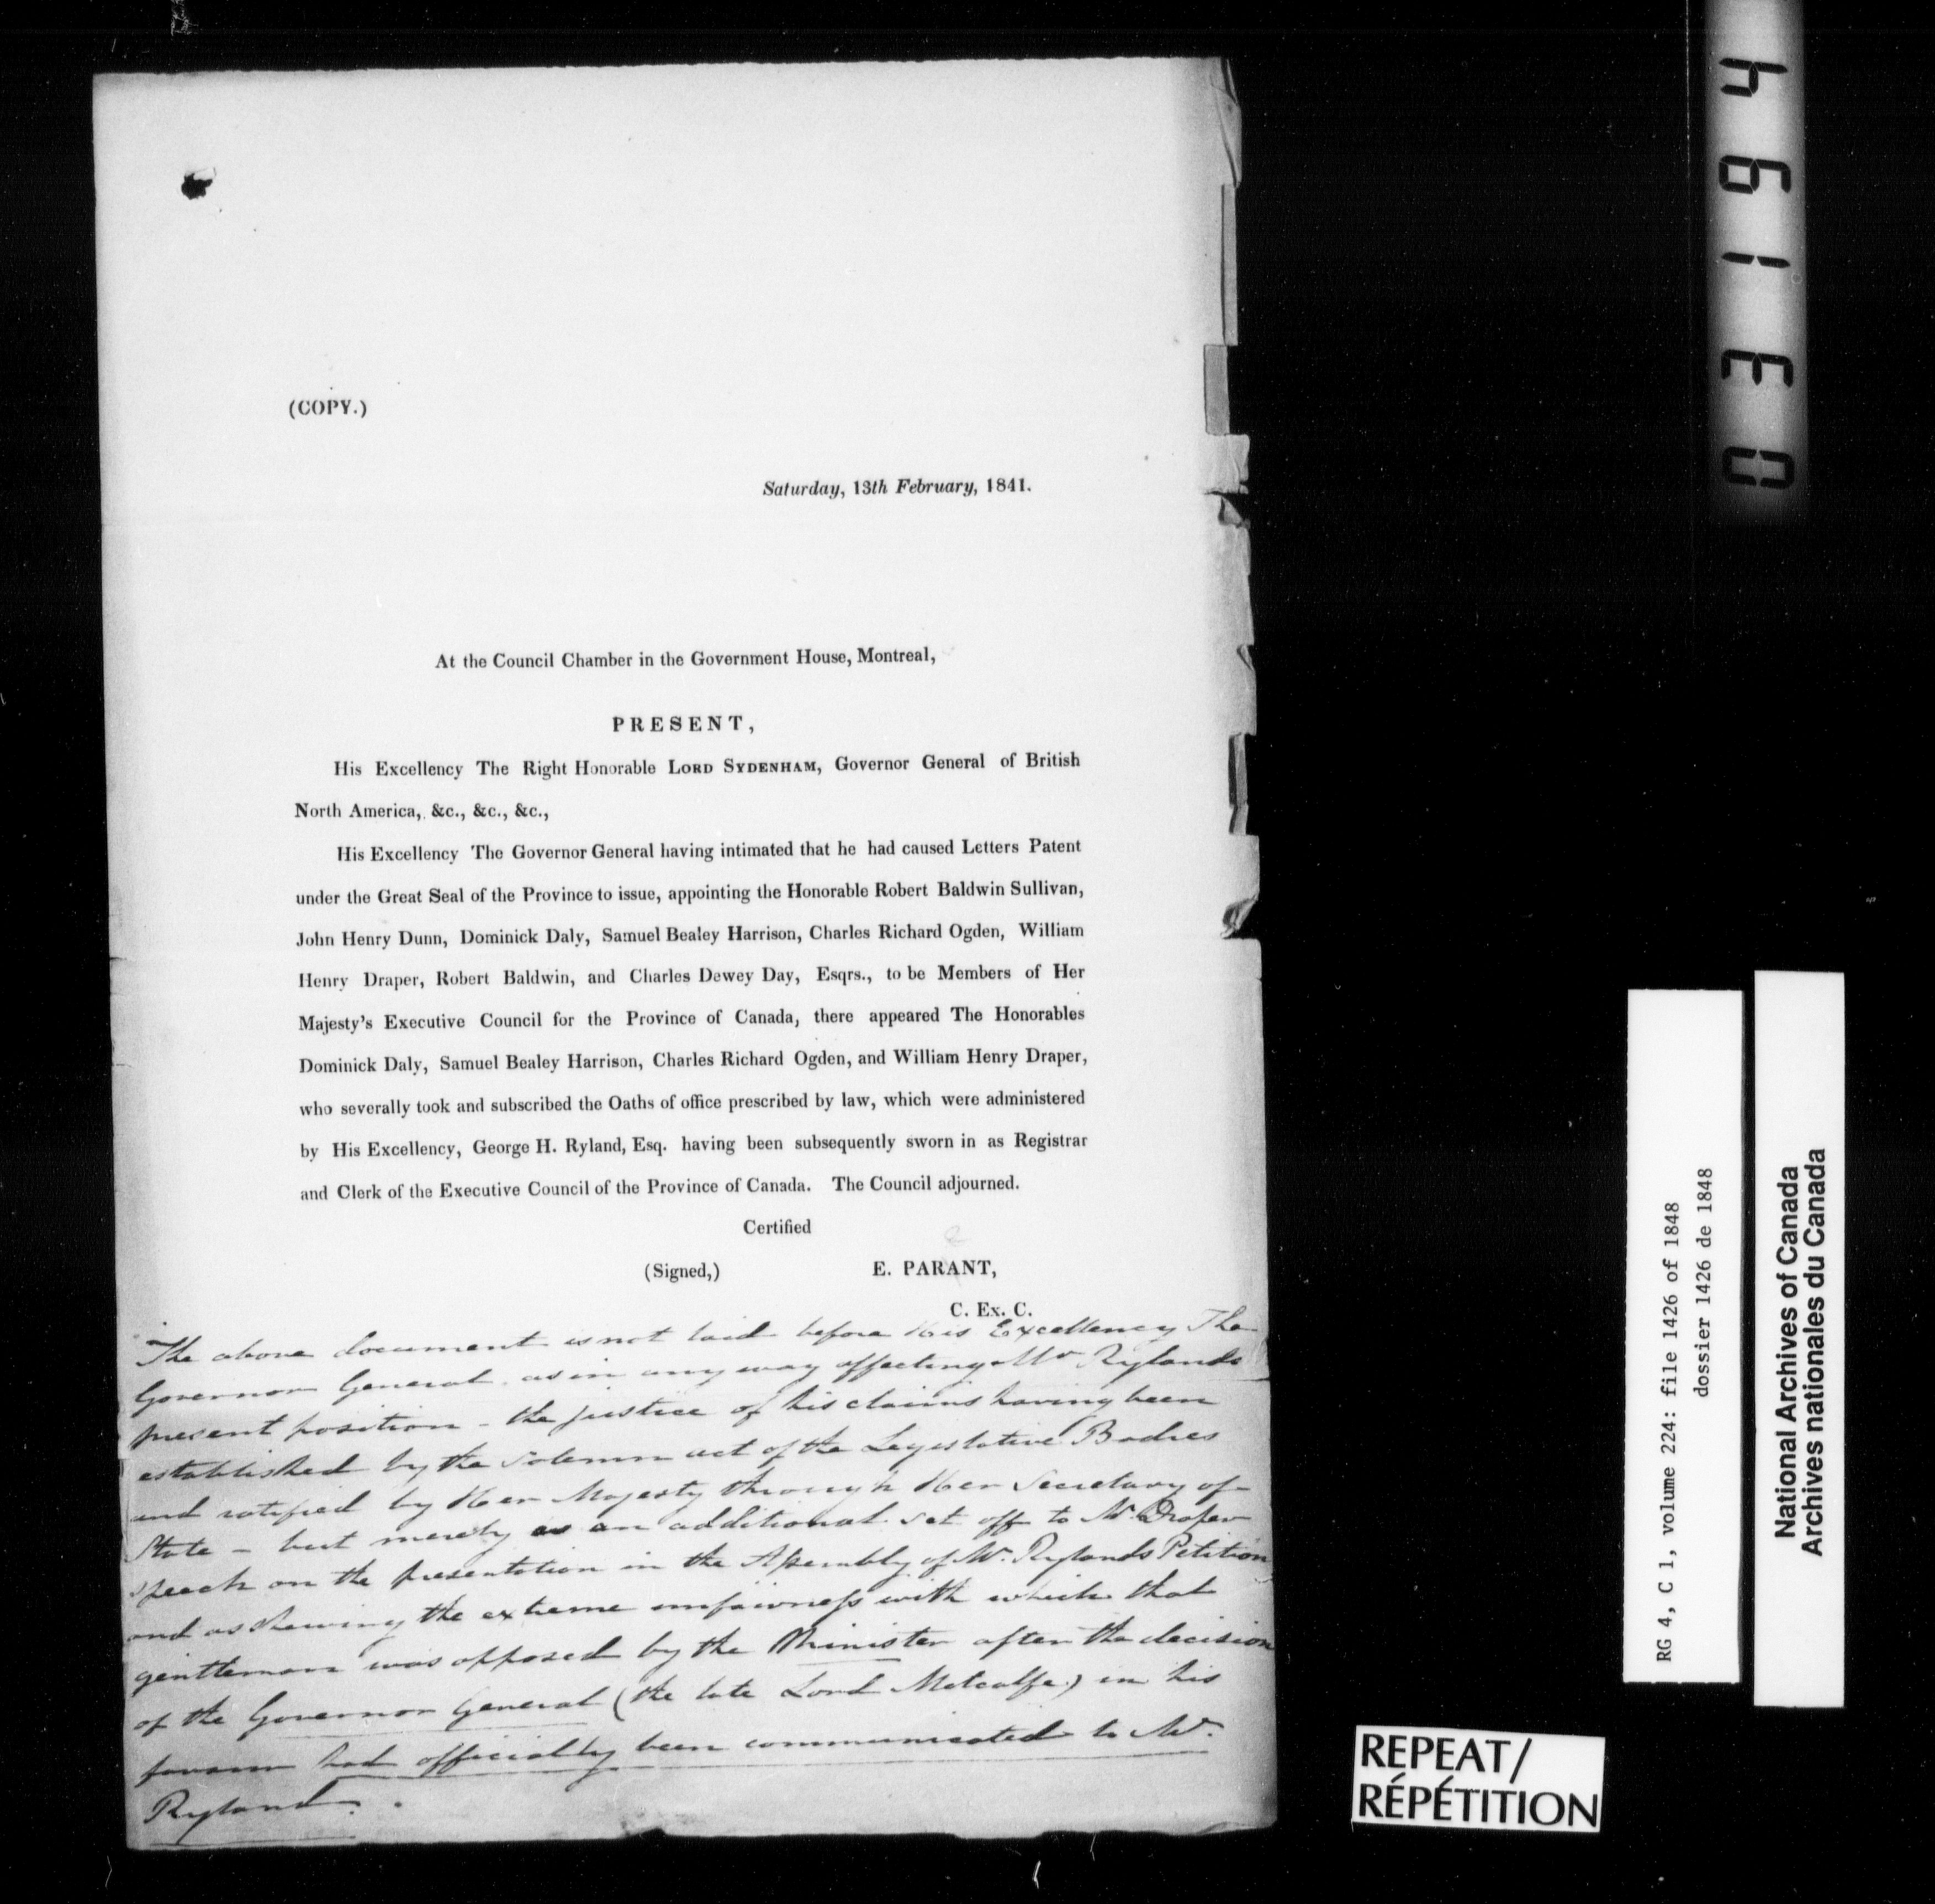 (COPY.)
Saturday, 13th February, 1841.
At the Council Chamber in the Government House, Montreal,
PRESENT,
His Excellency The Right Honorable LORD SYDENHAM, Governor General of British
North America, &c., &c., &c.,
His Excellency The Governor General having intimated that he had caused Letters Patent
under the Great Seal of the Province to issue, appointing the Honorable Robert Baldwin Sullivan,
John Henry Dunn, Dominick Daly, Samuel Bealey Harrison, Charles Richard Ogden, William
Henry Draper, Robert Baldwin, and Charles Dewey Day, Esqrs., to be Members of Her
Majesty's Executive Council for the Province of Canada, there appeared The Honorables
Dominick Daly, Samuel Bealey Harrison, Charles Richard Ogden, and William Henry Draper,
who severally took and subscribed the Oaths of office prescribed by law, which were administered
by His Excellency, George H. Ryland, Esq. having been subsequently sworn in as Registrar
and Clerk of the Executive Council of the Province of Canada. The Council adjourned.
Certified
(Signed,) E. PARANT,
C. Ex. C.
The above document is not laid before His Excellency The
Governor General as in any way affecting Mr Rylands
present position - the justice of his claims having been
established by the solemn act of the Legislative Bodies
and ratified by Her Majesty through Her Secretary of
State - but merely as an additional set off to Mr Draper
speech on the presentation in the Assembly of Mr. Rylands Petition
and as shewing the extreme unfairness with which that
gentleman was opposed by the Minister after the decision
of the Governor General (the late Lord Metcalfe) in his
favour had officially been communicated to Mr.
Ryland.
03194
RG 4, C 1, volume 224: file 1426 of 1848
dossier 1426 de 1848
National Archives of Canada
Archives nationales du Canada
REPEAT/
RÉPÉTITION